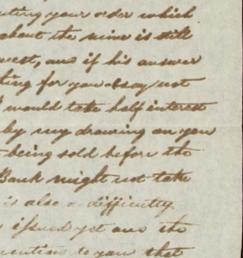 your order which
about the mine is still
west, and if his answer
thing for you I say not
I would take half interest
by my drawing on you
being sold before the
Bank might not take
is also a difficulty
issued yet and the
to you that